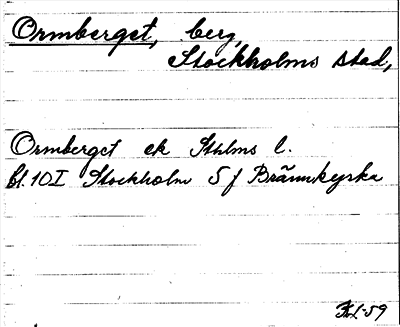 Ormberget, berg,
Stockholms stad,
Ormberget ek Sthlms l.
bl. 10 I Stockholm 5 f Brännkyrka
-59